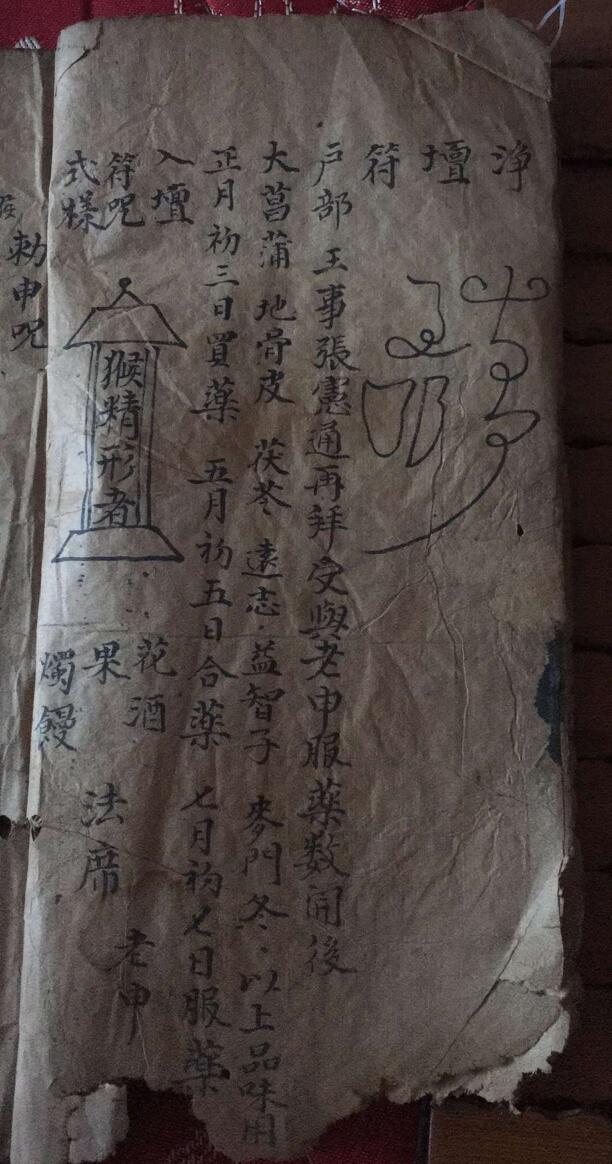 淨壇符
户部主事張憲通再拜受與老申服藥数開後
大菖蒲 地骨皮 茯苓 遠志 益智子 麥門冬 以上品味用
正月初三日買藥 五月初五日合藥 七月初七日服藥
入壇
符呪
式樣
猴精形者
花酒
果
燭饅
法席
老申
勅申呪